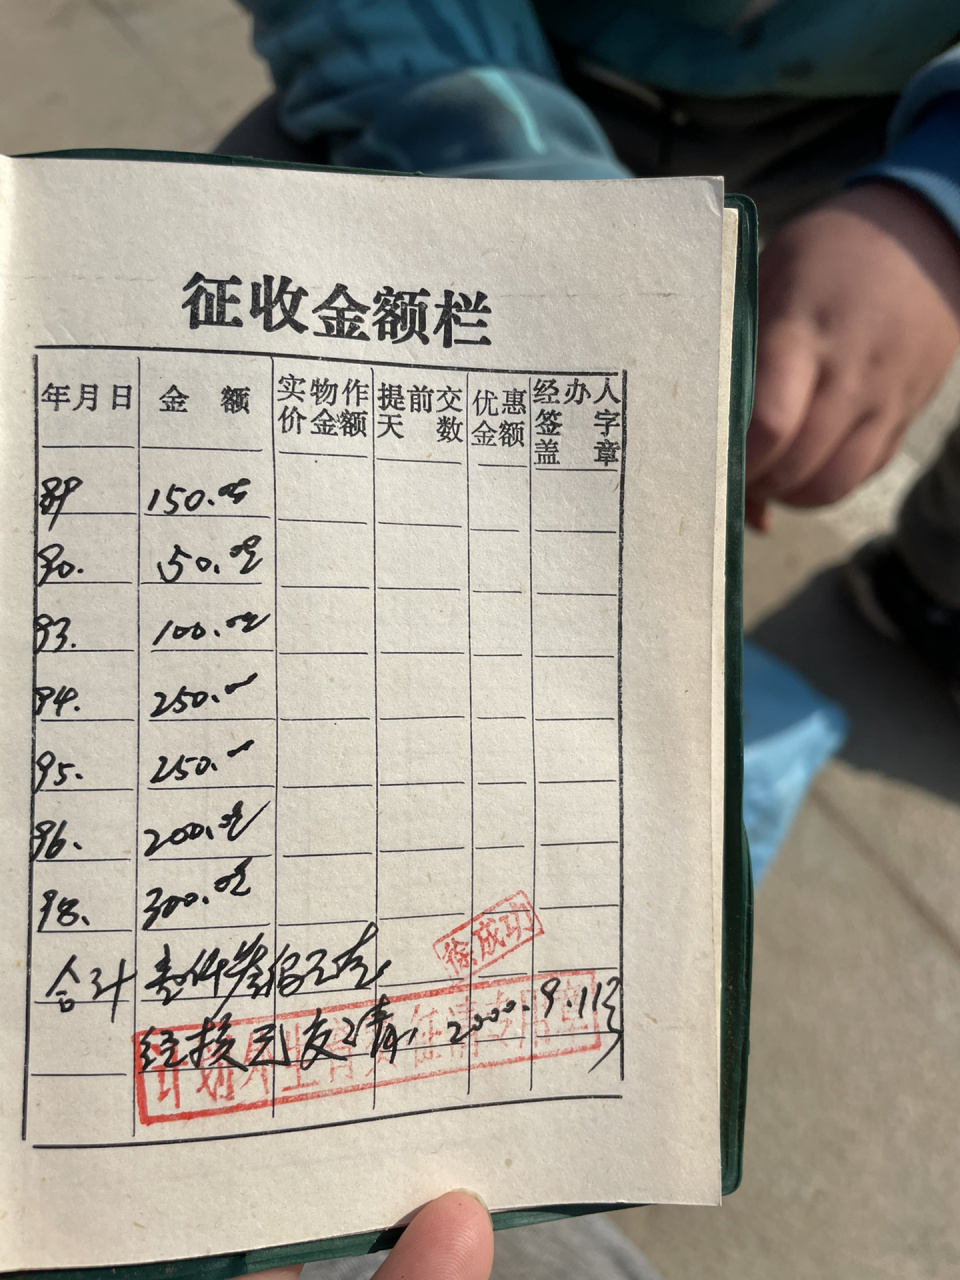 征收金额栏
年月日 金额 实物作价金额 提前交天数 优惠金额 经办人签字盖章
89 150.00
90. 50.00
93. 100.00
94. 250.00
95. 250.00
96. 200.00
98. 300.00
合计 壹仟叁佰元整
徐成功
经核已交清, 2000.9.11号
计划外生育费征清专用章